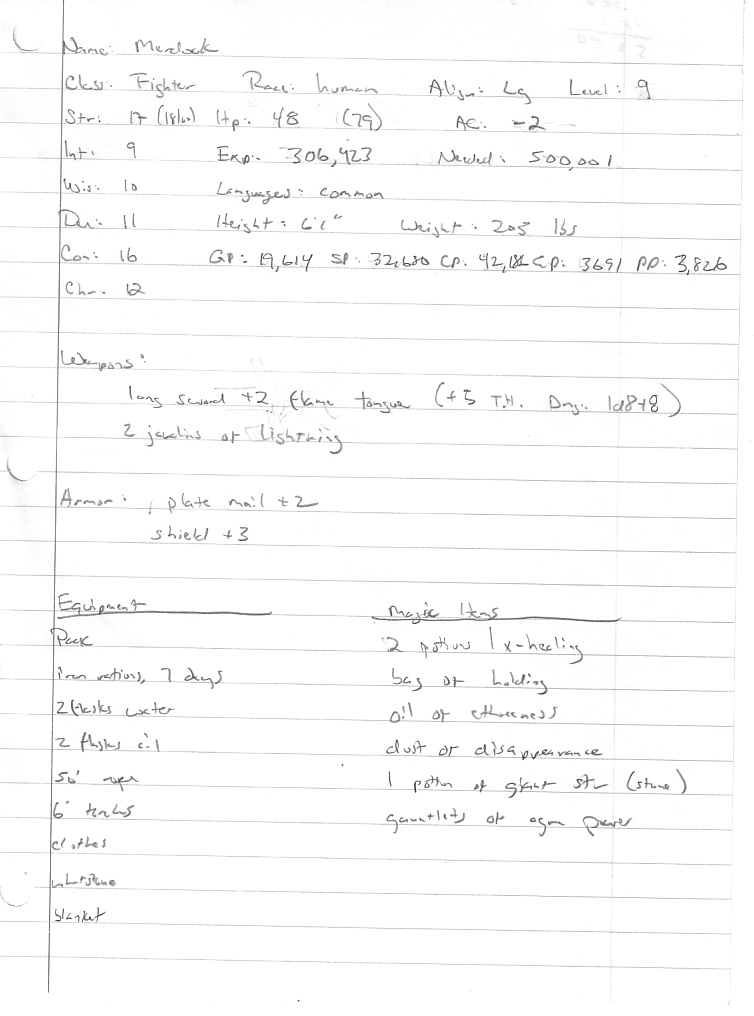 Name: Merelock
Class: Fighter Race: human Align: Lg Level: 9
Str: 17 (18/00) Hp: 48 (79) AC: -2
Int: 9 Exp: 306,423 Needed: 500,001
Wis: 10 Languages: common
Dex: 11 Height: 6'1" Weight: 205 lbs
Con: 16 GP: 19,614 SP: 32,680 CP: 42,188 EP: 3691 PP: 3,826
Chr: 12
Weapons:
long sword +2, flame tongue (+5 T.H. Dmg: 1d8+8)
2 javelins of lightning
Armor: plate mail +2
shield +3
Equipment Magic Items
Pack 2 potions / x-healing
iron rations, 7 days bag of holding
2 flasks water oil of ethreeness
2 flasks oil dust of disappearance
50' rope 1 potion of giant str (stone)
6 torches gauntlets of ogre power
clothes
whetstone
blanket